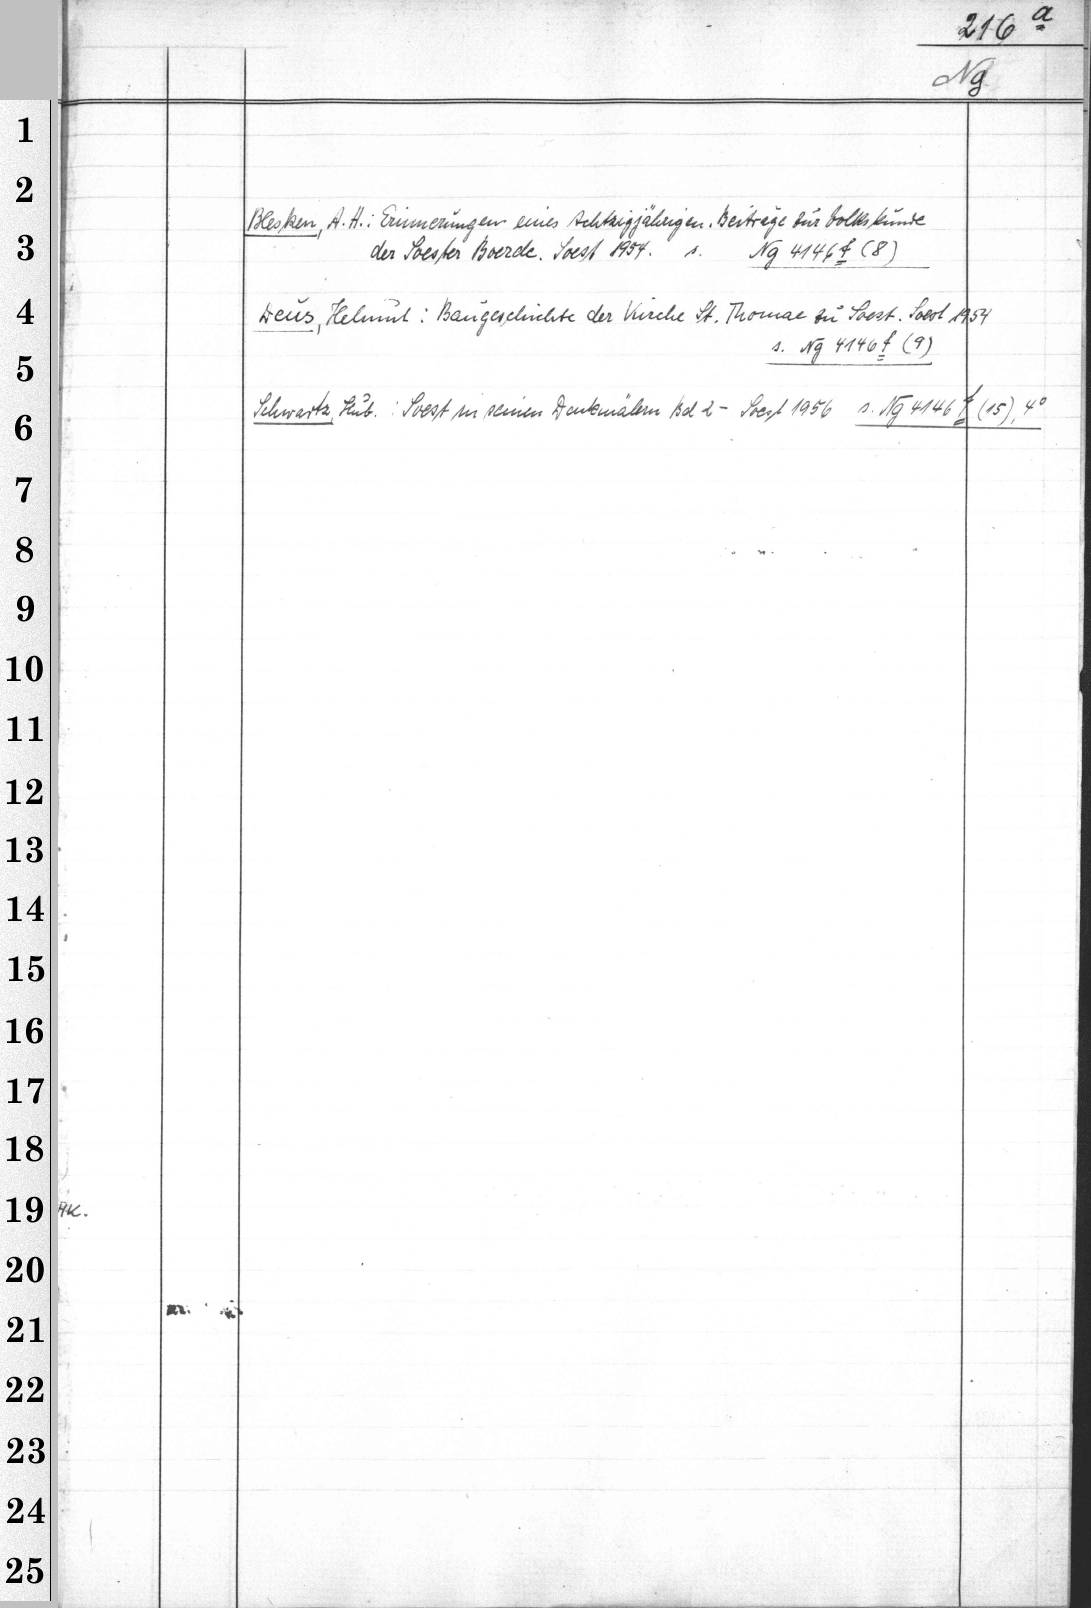 216 a
Ng
1
2
Blesken, A. H.: Erinnerungen eines Achtzigjährigen. Beiträge zur Volkskunde
3
der Soester Boerde. Soest 1954. s. Ng 4146 f (8)
4
Deus, Helmut: Baugeschichte der Kirche St. Thomae zu Soest. Soest 1954
s. Ng 4146 f (9)
5
6
Schwartz, Hub.: Soest in seinen Denkmälern Bd 2 - Soest 1956 s. Ng 4146 f (15), 4°
7
8
9
10
11
12
13
14
15
16
17
18
19
20
21
22
23
24
25